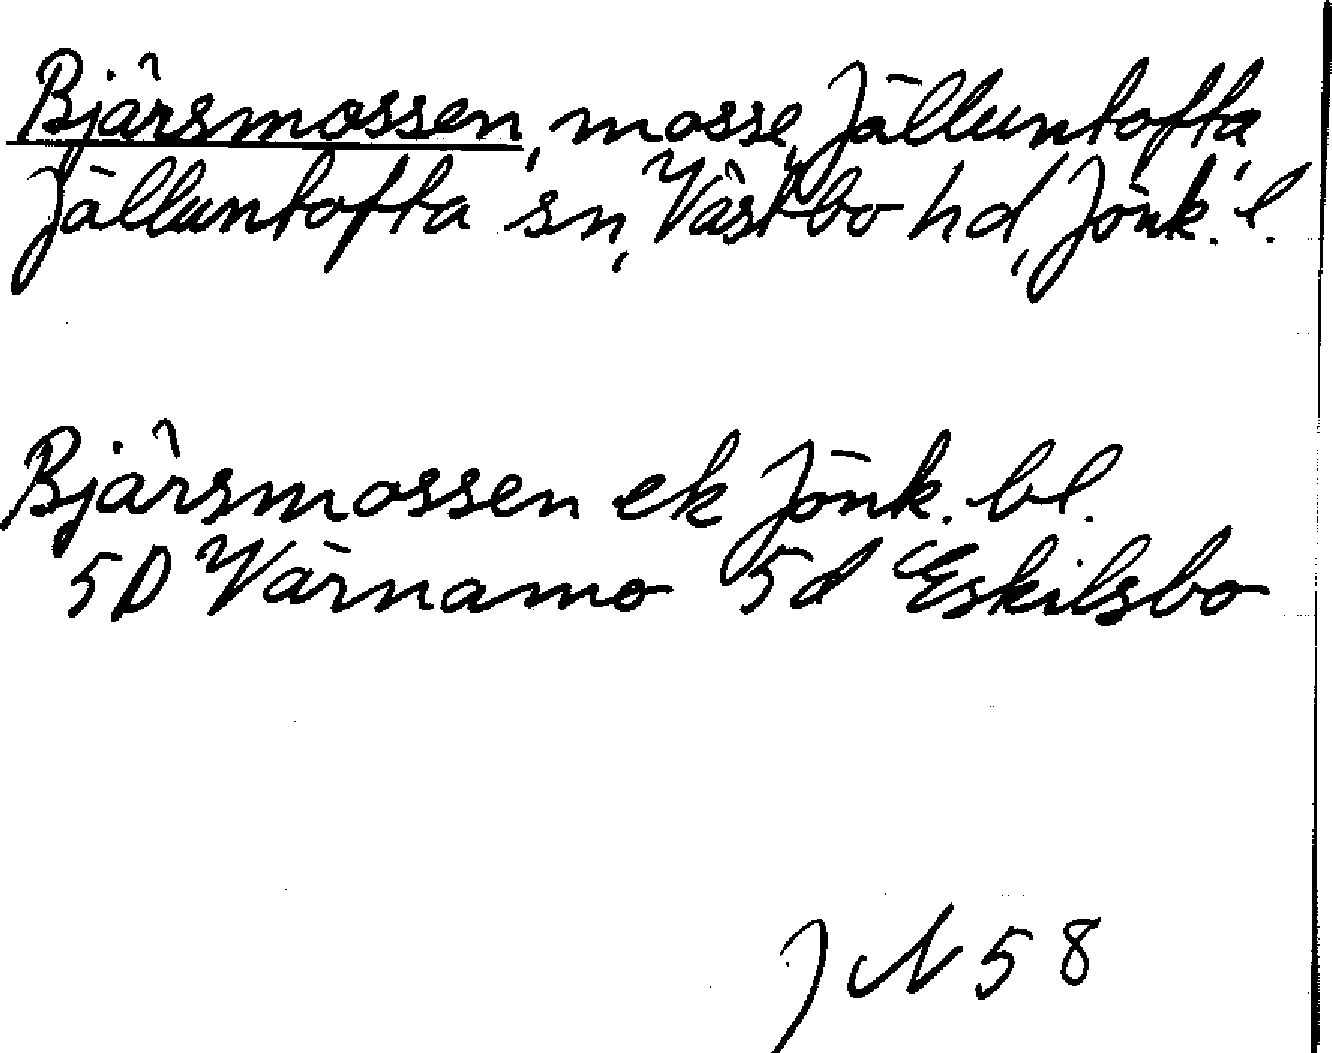 Bjärsmossen, mosse, Jälluntofta,
Jälluntofta sn, Västbo hd, Jönk. l.
Bjärsmossen ek Jönk. bl.
5D Värnamo 5d Eskilsbo
J N 58